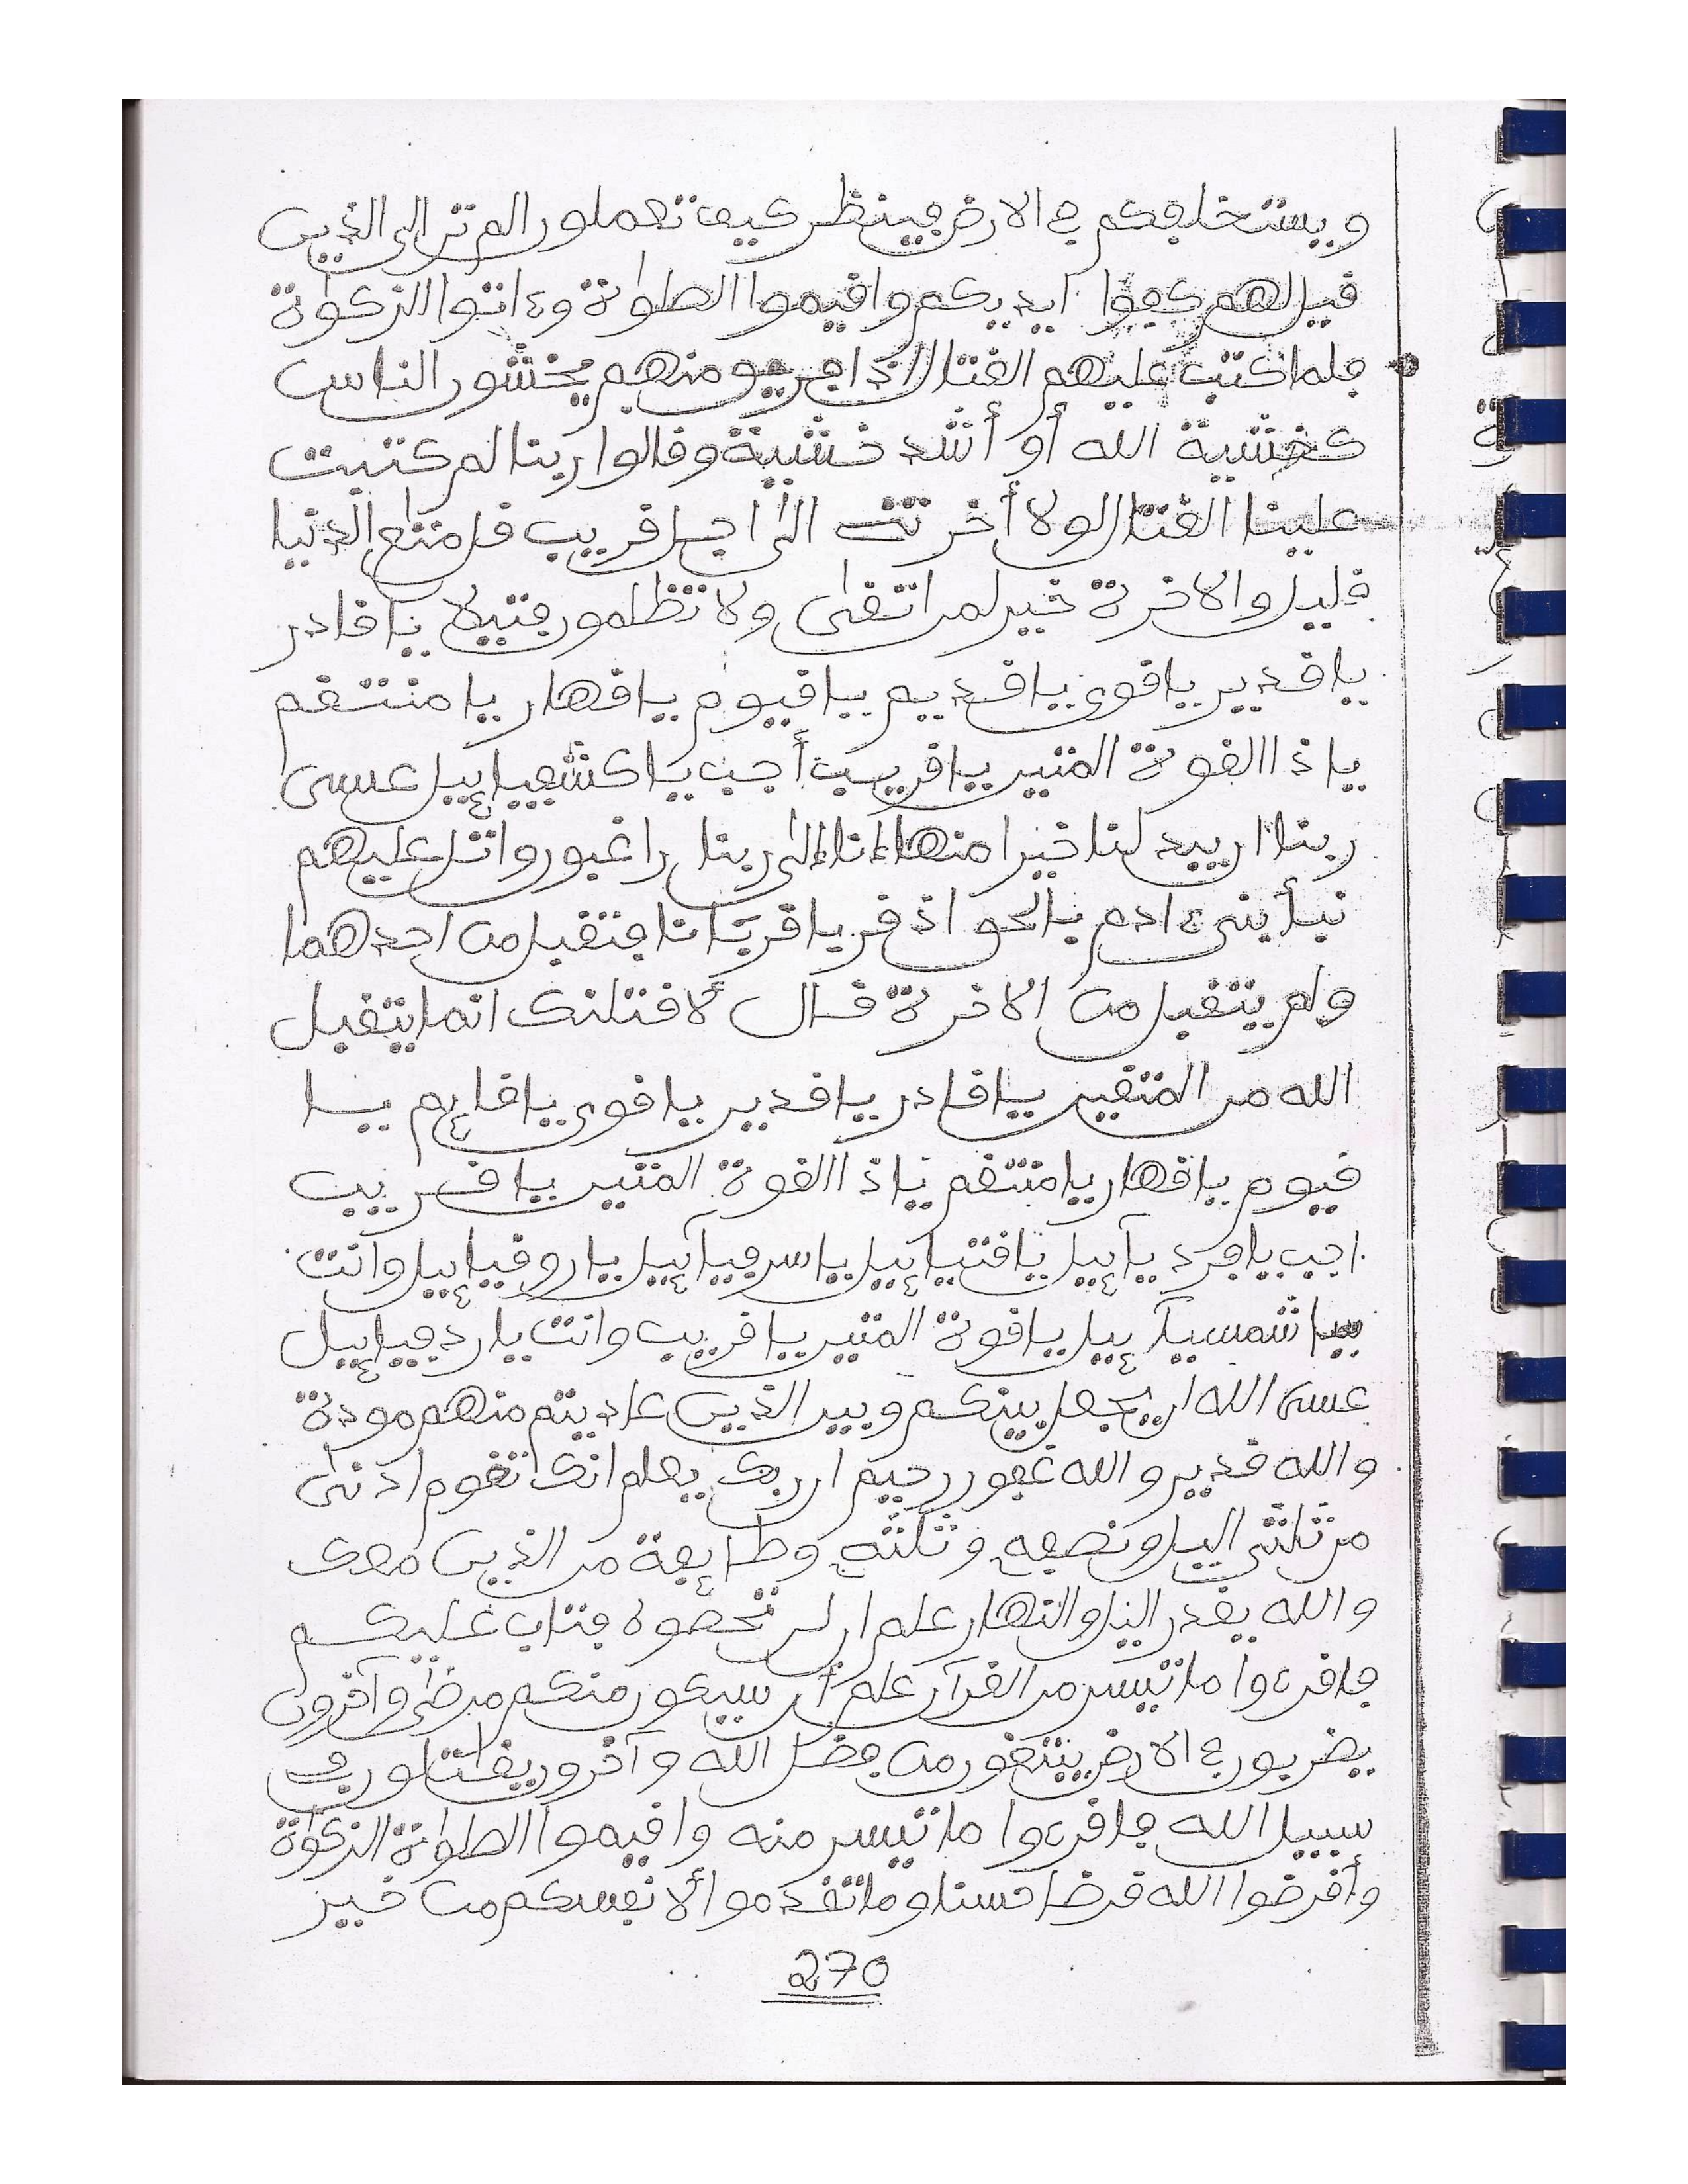 ويستخلفكم في الارض فينظر كيف تعملون الم تر الى الذين
قيل لهم كفوا ايديكم واقيموا الصلوٰة وءاتوا الزكوٰة
فلما كتب عليهم القتال اذا فريق منهم يخشون الناس
كخشية الله أو أشد خشية وقالوا ربنا لم كتبت
علينا القتال لولا أخرتنا الىٰ اجل قريب قل متٰع الدنيا
قليل والاخرة خير لمن اتقىٰ ولا تظلمون فتيلا يا قادر
يا قدير يا قوي يا قديم يا قيوم يا قهار يا منتقم
يا ذا القوة المتين يا قريب أجب يا كشفيائيل عسى
ربنا ان يبدلنا خيرا منها إنا إلىٰ ربنا راغبون واتل عليهم
نبأ بني ءادم بالحق اذ قربا قربانا فتقبل من احدهما
ولم يتقبل من الاخرة قال لأقتلنك انما يتقبل
الله من المتقين يا قادر يا قدير يا قوي يا قائم يا
قيوم يا قهار يا منتقم يا ذا القوة المتين يا قريب
اجب يا فرديآئيل يا قتيائيل يا سرفيآئيل يا روقيائيل وأنت
يا شمسيآئيل يا قوة المتين يا قريب وانت يا ردفيائيل
عسى الله ان يجعل بينكم وبين الذين عاديتم منهم مودة
والله قدير والله غفور رحيم ان ربك يعلم انك تقوم ادنىٰ
من ثلثي اليل ونصفه وثلثه وطائفة من الذين معك
والله يقدر اليل والنهار علم ان لن تحصوه فتاب عليكم
فاقرءوا ما تيسر من القرآن علم أن سيكون منكم مرضىٰ وآخرون
يضربون في الارض يبتغون من فضل الله وآخرون يقٰتلون في
سبيل الله فاقرءوا ما تيسر منه واقيموا الصلوٰة الزكوٰة
وأقرضوا الله قرضا حسنا وما تقدموا لأنفسكم من خير
270